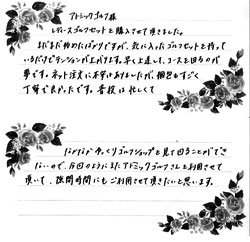 アトミックゴルフ様
レディースゴルフセットを購入させて頂きました。
まだまだ初心者ですが、気に入ったゴルフセットを持って
いるだけでテンションが上がります。早く上達して、コースを回るのが
夢です。ネット注文に不安はありましたが、梱包もすごく
丁寧で良かったです。普段は忙しくて
なかなかゆっくりゴルフショップを見て回ることができ
ないので、今回のようにまたアトミックゴルフさんを利用させて
頂いて、隙間時間にもご利用させて頂きたいと思います。